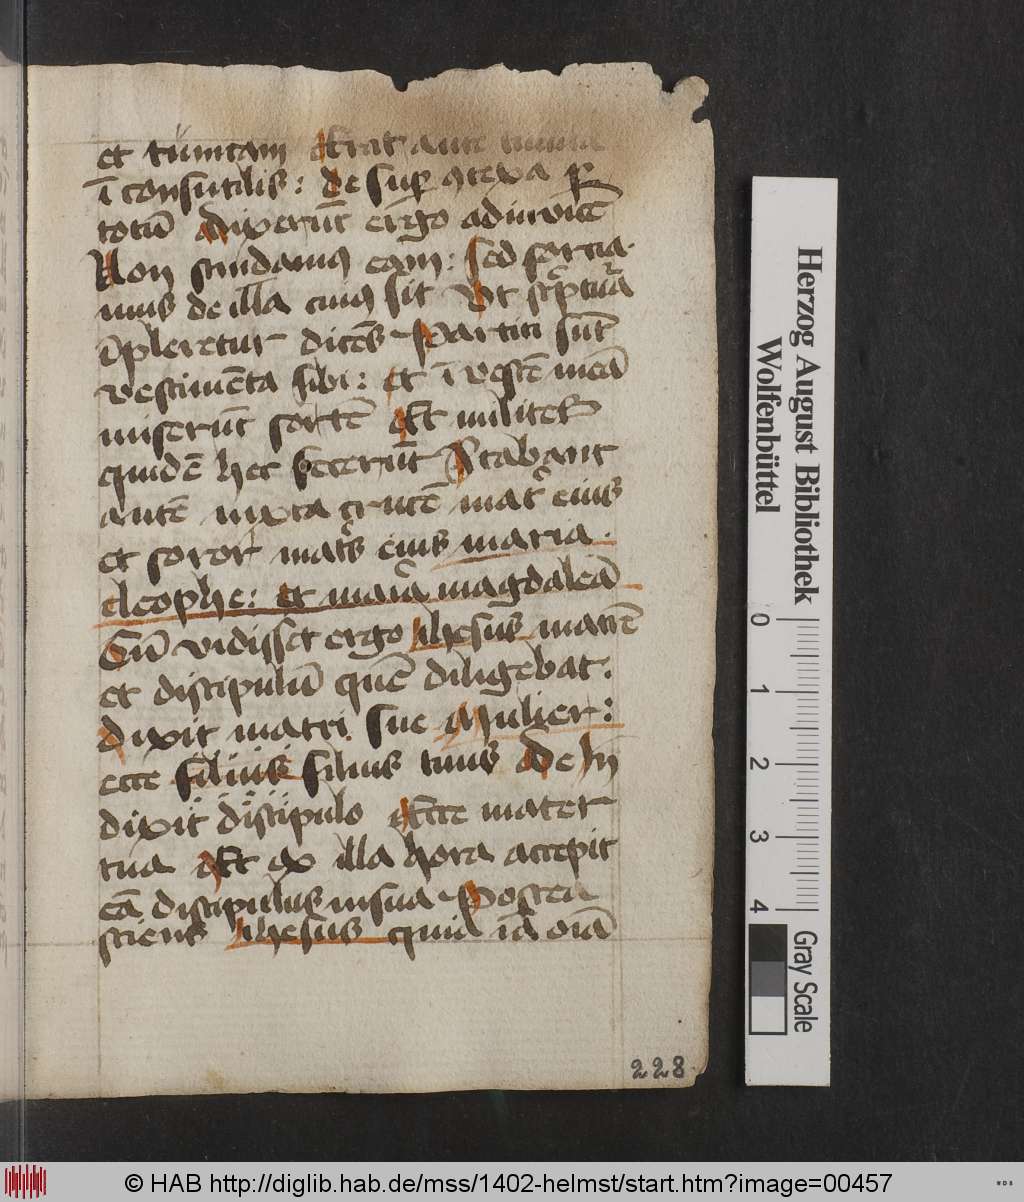 et tunicam Erat autē tunica
ī consutilis: de suꝑ ↄtexa ꝑ
totū dixerūt ergo adinvicē
Non scindamꝰ eam: sed sortia
mus de illa cuiꝰ sit Vt scͥptura
īpleretur dicēs Partiti sūt
vestimēta sibi: et ī vestē meā
miserūt sortē Et milites
quidē hec fecerūt Stabant
autē iuxta crucē mat̉ eius
et soror matͥs eius maria
cleophe: et maͥa magdaleā
Cū vidisset ergo ihesus matrē
et discipulū quē diligebat:
dixit matri sue Mulier:
ecce filius filius tuus De
dixit discipulo Ecce mater
tua Et ex illa hora accepit
eā discipulus insua Postea
sciens ihesus quia iā oīa
228
Herzog August Bibliothek
Wolfenbüttel
0 1 2 3 4
Gray Scale
© HAB http://diglib.hab.de/mss/1402-helmst/start.htm?image=00457